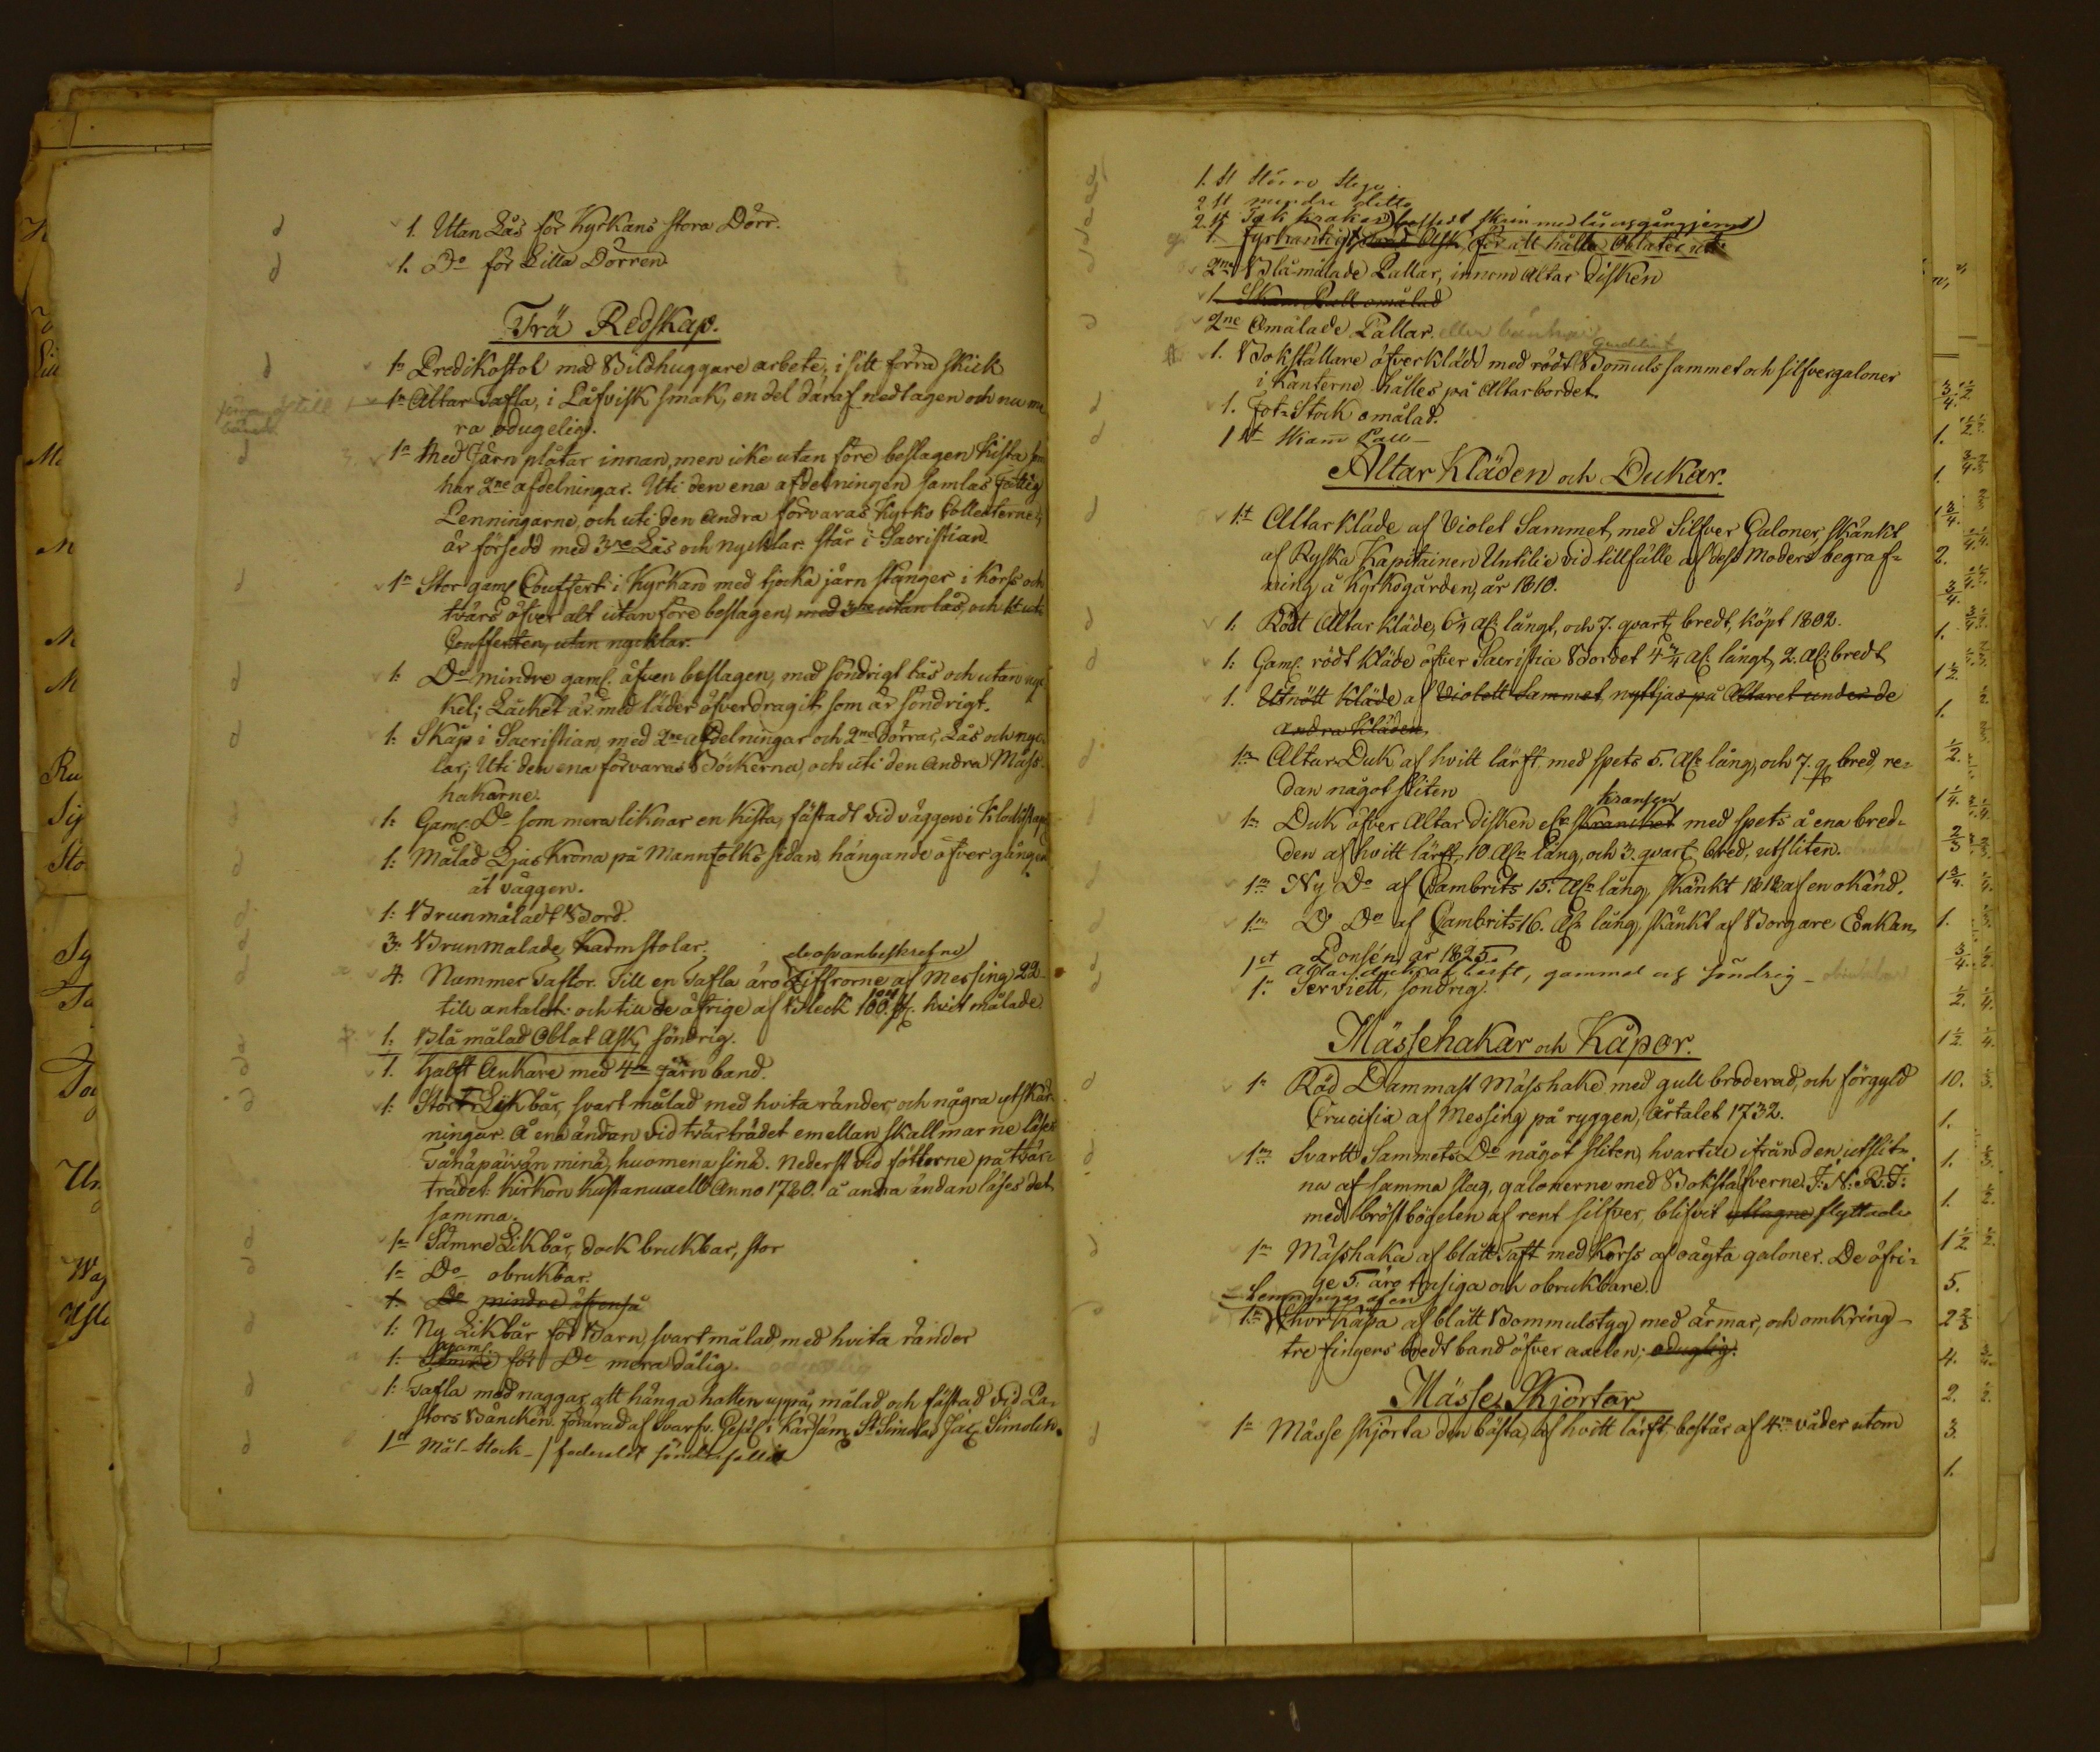 1. Utan Lås för Kyrkans stora Dörr.
1. Do för Lilla Dörren
Trä Redskap.
1n Predikostol med Bildhuggare arbete, i sitt förra skick
1n Altar Tafla, i Låfvisk smak, en del däraf nedtagen och nu me
ra odugelig.
1n Med Järn plåtar innan, men icke utan före beslagen Kista
har 2ne afdelningar. Uti den ena afdelningen samlas Fattig
Penningarne, och uti den andra förvaras Kyrko Collecterne,
är försedd med 3ne Lås och nycklar. står i Sacristian.
1n Stor gaml Couffert i Kyrkan med tjocka järn stänger i Korss och
tvärs öfver alt utanföre beslagen, med 3ne utan lås, och
Coufferten, utan nycklar.
1: Do mindre gaml. äfven beslagen, med söndrigt lås och utan nyc
kel; Låcket är med läder öfverdragit som är söndrigt.
1: Skåp i Sacristian, med 2ne afdelningar och 2ne Dörrar, Lås och nyc
lar; Uti den ena förvaras Böckerna, och uti den andra Mäss-
hakarne.
1: Gaml. Do som mera liknar en Kista, fästadt vid väggen i
1: Målad Ljus Krona på Mannfolks sidan, hängande öfver gången
åt väggen.
1: Brunmåladt Bord.
3: Brunmalade Karmstolar.
de ofvanbeskrefne
4: Nummer Taflor. Till en Tafla äro Ziffrorne af Messing 22
till antalet: och till de öfrige af Bleck 100. st. hvit målade.
1. Blå målad Oblat Ask, söndrig.
1. Halft Ankare med 4 järn band.
1: Stor Likbår, svart målad med hvita ränder, och några utskär-
ningar. Å ena ändan vid tvärträdet emellan skallmarne läses
Tänäpäivän minä, huomena sinä. Nederst vid fötterne på tvär-
trädet: Kirkon Kustanuxella Anno 1780. å andra ändan läses det
samma.
1n Sämre Likbår, dock brukbar, stor
1n Do obrukbar.
1. Do mindre äfvenså
1: Ny Likbår för Barn, svart målad, med hvita ränder
gaml.
1: Sämre för Do mera dålig.
1: Tafla med naggar att hänga hatten uppå, målad och fästad vid Pa-
stors Bäncken. förärad af Svarfv. Gesäl:
1st Mål-Stock - fodralet sönderfallit
1. st Större Stege.
2 st mindre ditto
2. st Tak krakar
1. Fyrkantigt Ask, för att hålla Oblater uti
2ne Blåmålade Pallar, innom Altar Disken
1. Skam Pall omålad
2ne Omålade Pallar. eller
1. Bokställare öfverklädd med rödt Bomuls sammet och silfvergaloner
i Kanterne, hålles på Altarbordet.
1. Fot-Stock omålad.
1 st Skam Pall
Altar Kläden och Dukar.
1st Altar kläde af Violet Sammet, med Silfver Galoner, skänkt
af Ryska Kapitainen Untilie vid tillfälle af dess Moders begraf-
ning, å Kyrkogården, år 1810.
1: Rödt Altar kläde, 6 1/4 al: långt, och 7. quart bredt, köpt 1802.
1: Gaml. rödt kläde öfver Sacristie Bordet 4 3/4 al: långt, 2. al: bredt
1. Utnött kläde af Violett Sammet, nyttjas på Altaret under de
andra kläden.
1n Altar-Duk af hvitt lärft, med spets 5. al: lång, och 7. q bred, re-
dan något sliten
kransen
1n Duk öfver Altar disken med spets å ena bred-
den af hvitt lärft, 10. al: lång, och 3. quart: bred, utsliten.
1n Ny Do af Cambrits 15. al: lång, skänkt 1818 af en okänd.
1n D Do af Cambrits 16. al: lång, skänkt af Borgare Enkan,
Ponsén, år 1825.
1st Altar duk af lärft, gammal och söndrig -
1: Serviett, söndrig.
Mässehakar och Kåpor.
1n Röd Dammast Mässhake med gull broderad, och förgyld
Crucifix af Messing på ryggen, årtalet 1732.
1n Svartt Sammets Do något sliten, hvartill ifrån den utslit-
na af samma slag, galonerne med Bokstäfverne J: N: R: J:
med bröstbögelen af rent silfver, blifvit uttagne flyttade
1n Mässhaka af blått Taft med Korss af oägta galoner. De öfri-
ge 5. äro trasiga och obrukbare.
Lemningar af en
1n Chor Kåpa af blått Bommulstyg med ärmar, och omkring
tre fingers bredt band öfver axlen; oduglig.
Mässe Skjortor
1n Mässe skjorta den bästa, af hvitt lärft, består af 4 våder utom